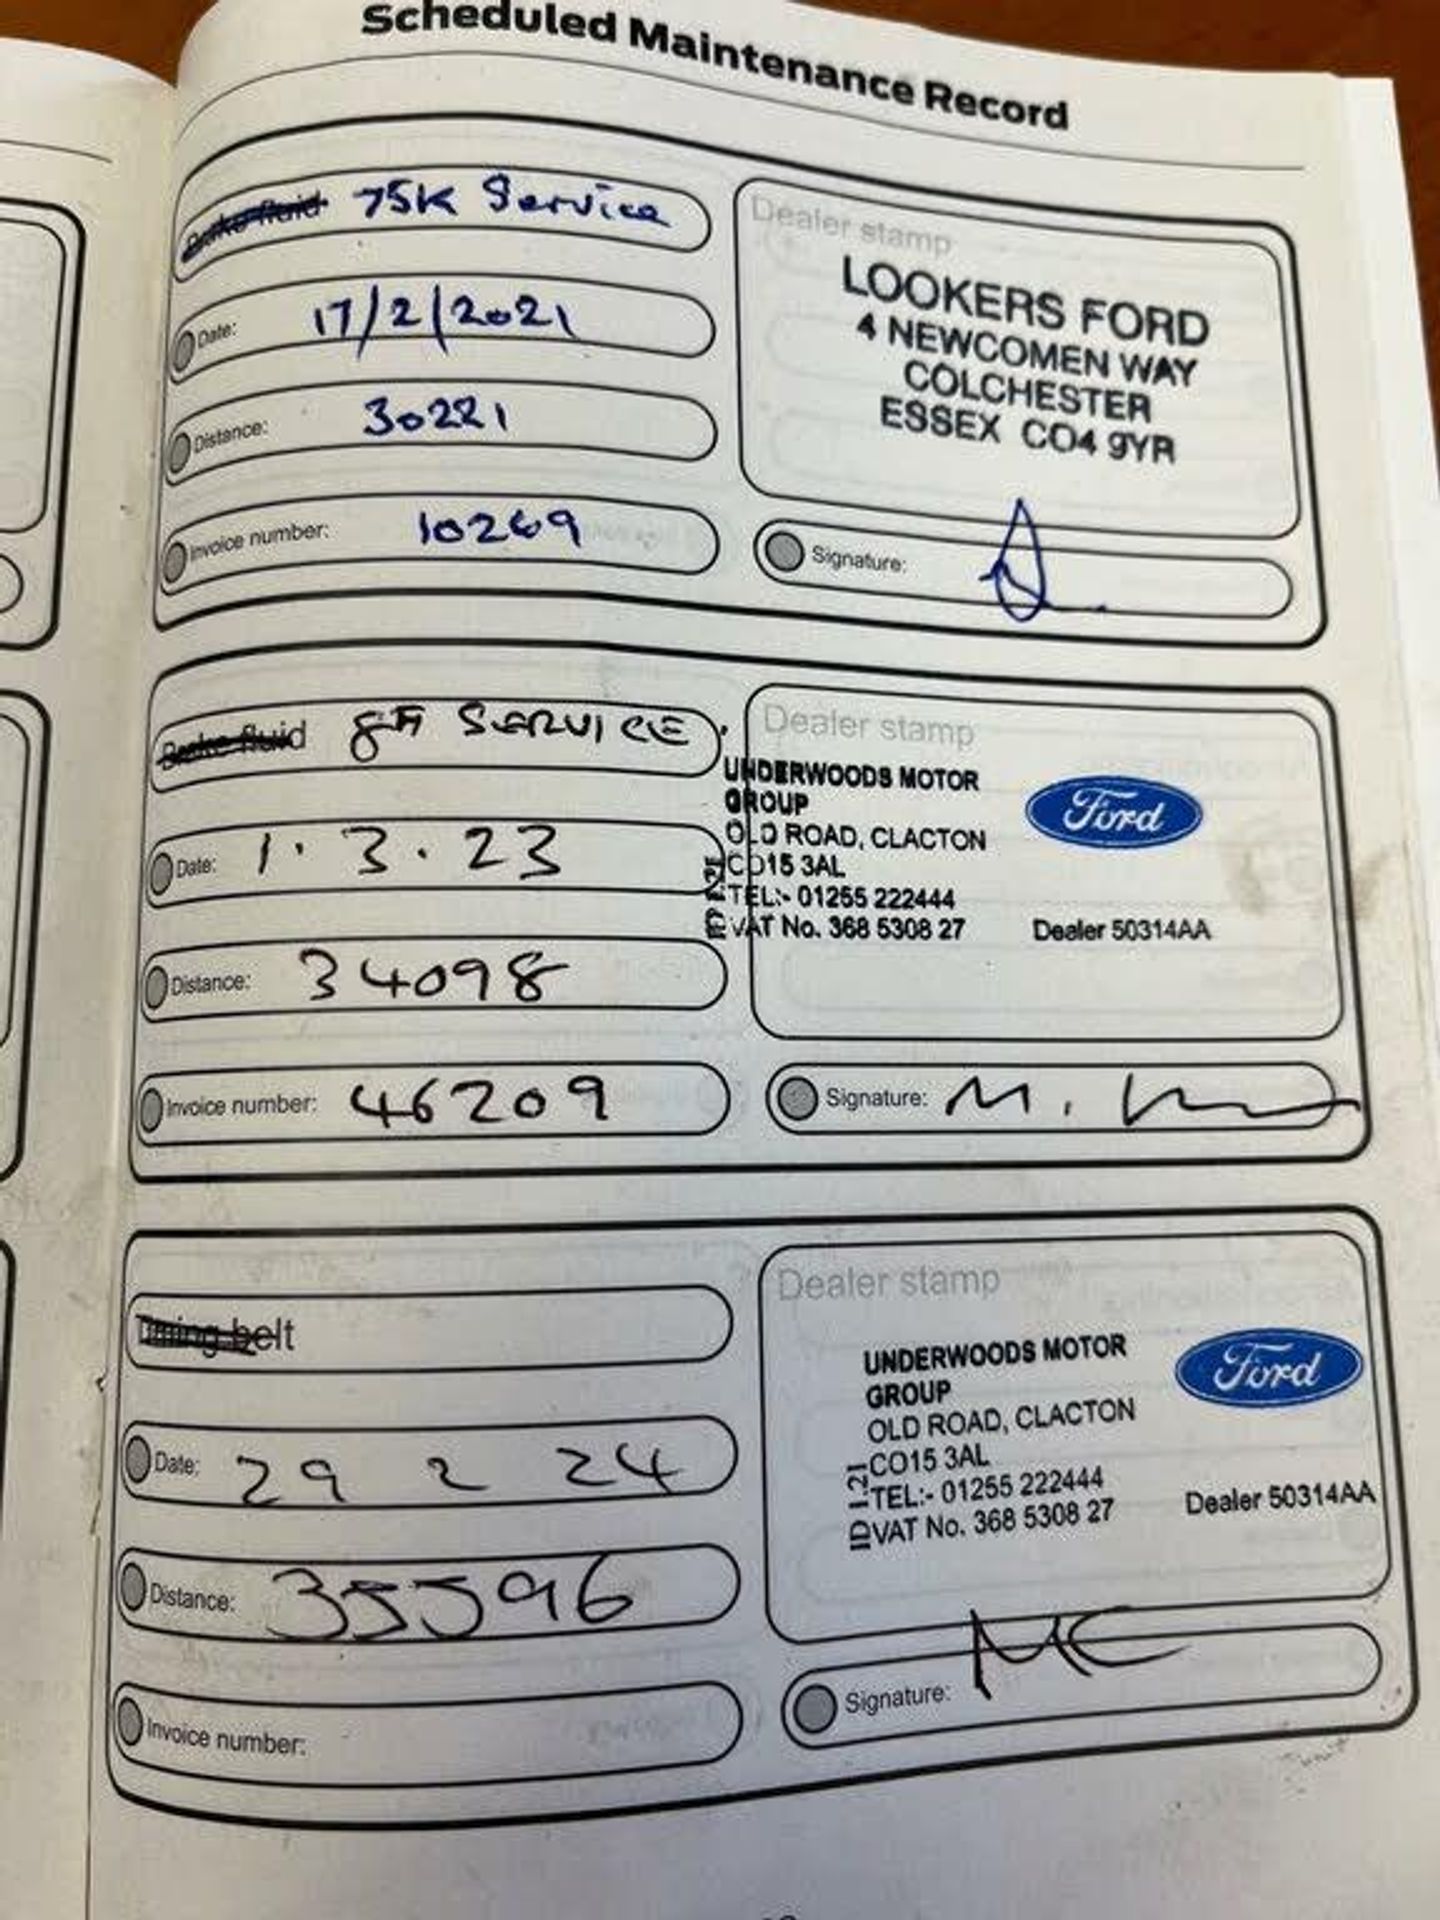 Scheduled Maintenance Record
Brake fluid 75K Service
Date: 17/2/2021
Distance: 30221
Invoice number: 10269
Dealer stamp
LOOKERS FORD
4 NEWCOMEN WAY
COLCHESTER
ESSEX CO4 9YR
Signature:
Brake fluid 8TH SERVICE
Date: 1.3.23
Distance: 34098
Invoice number: 46209
Dealer stamp
UNDERWOODS MOTOR
GROUP
OLD ROAD, CLACTON
CO15 3AL
TEL:- 01255 222444
VAT No. 368 5308 27
Ford
Dealer 50314AA
Signature: M.
Timing belt
Date: 29 2 24
Distance: 35596
Invoice number:
Dealer stamp
UNDERWOODS MOTOR
GROUP
OLD ROAD, CLACTON
CO15 3AL
TEL:- 01255 222444
VAT No. 368 5308 27
ID 121
Ford
Dealer 50314AA
Signature: MC